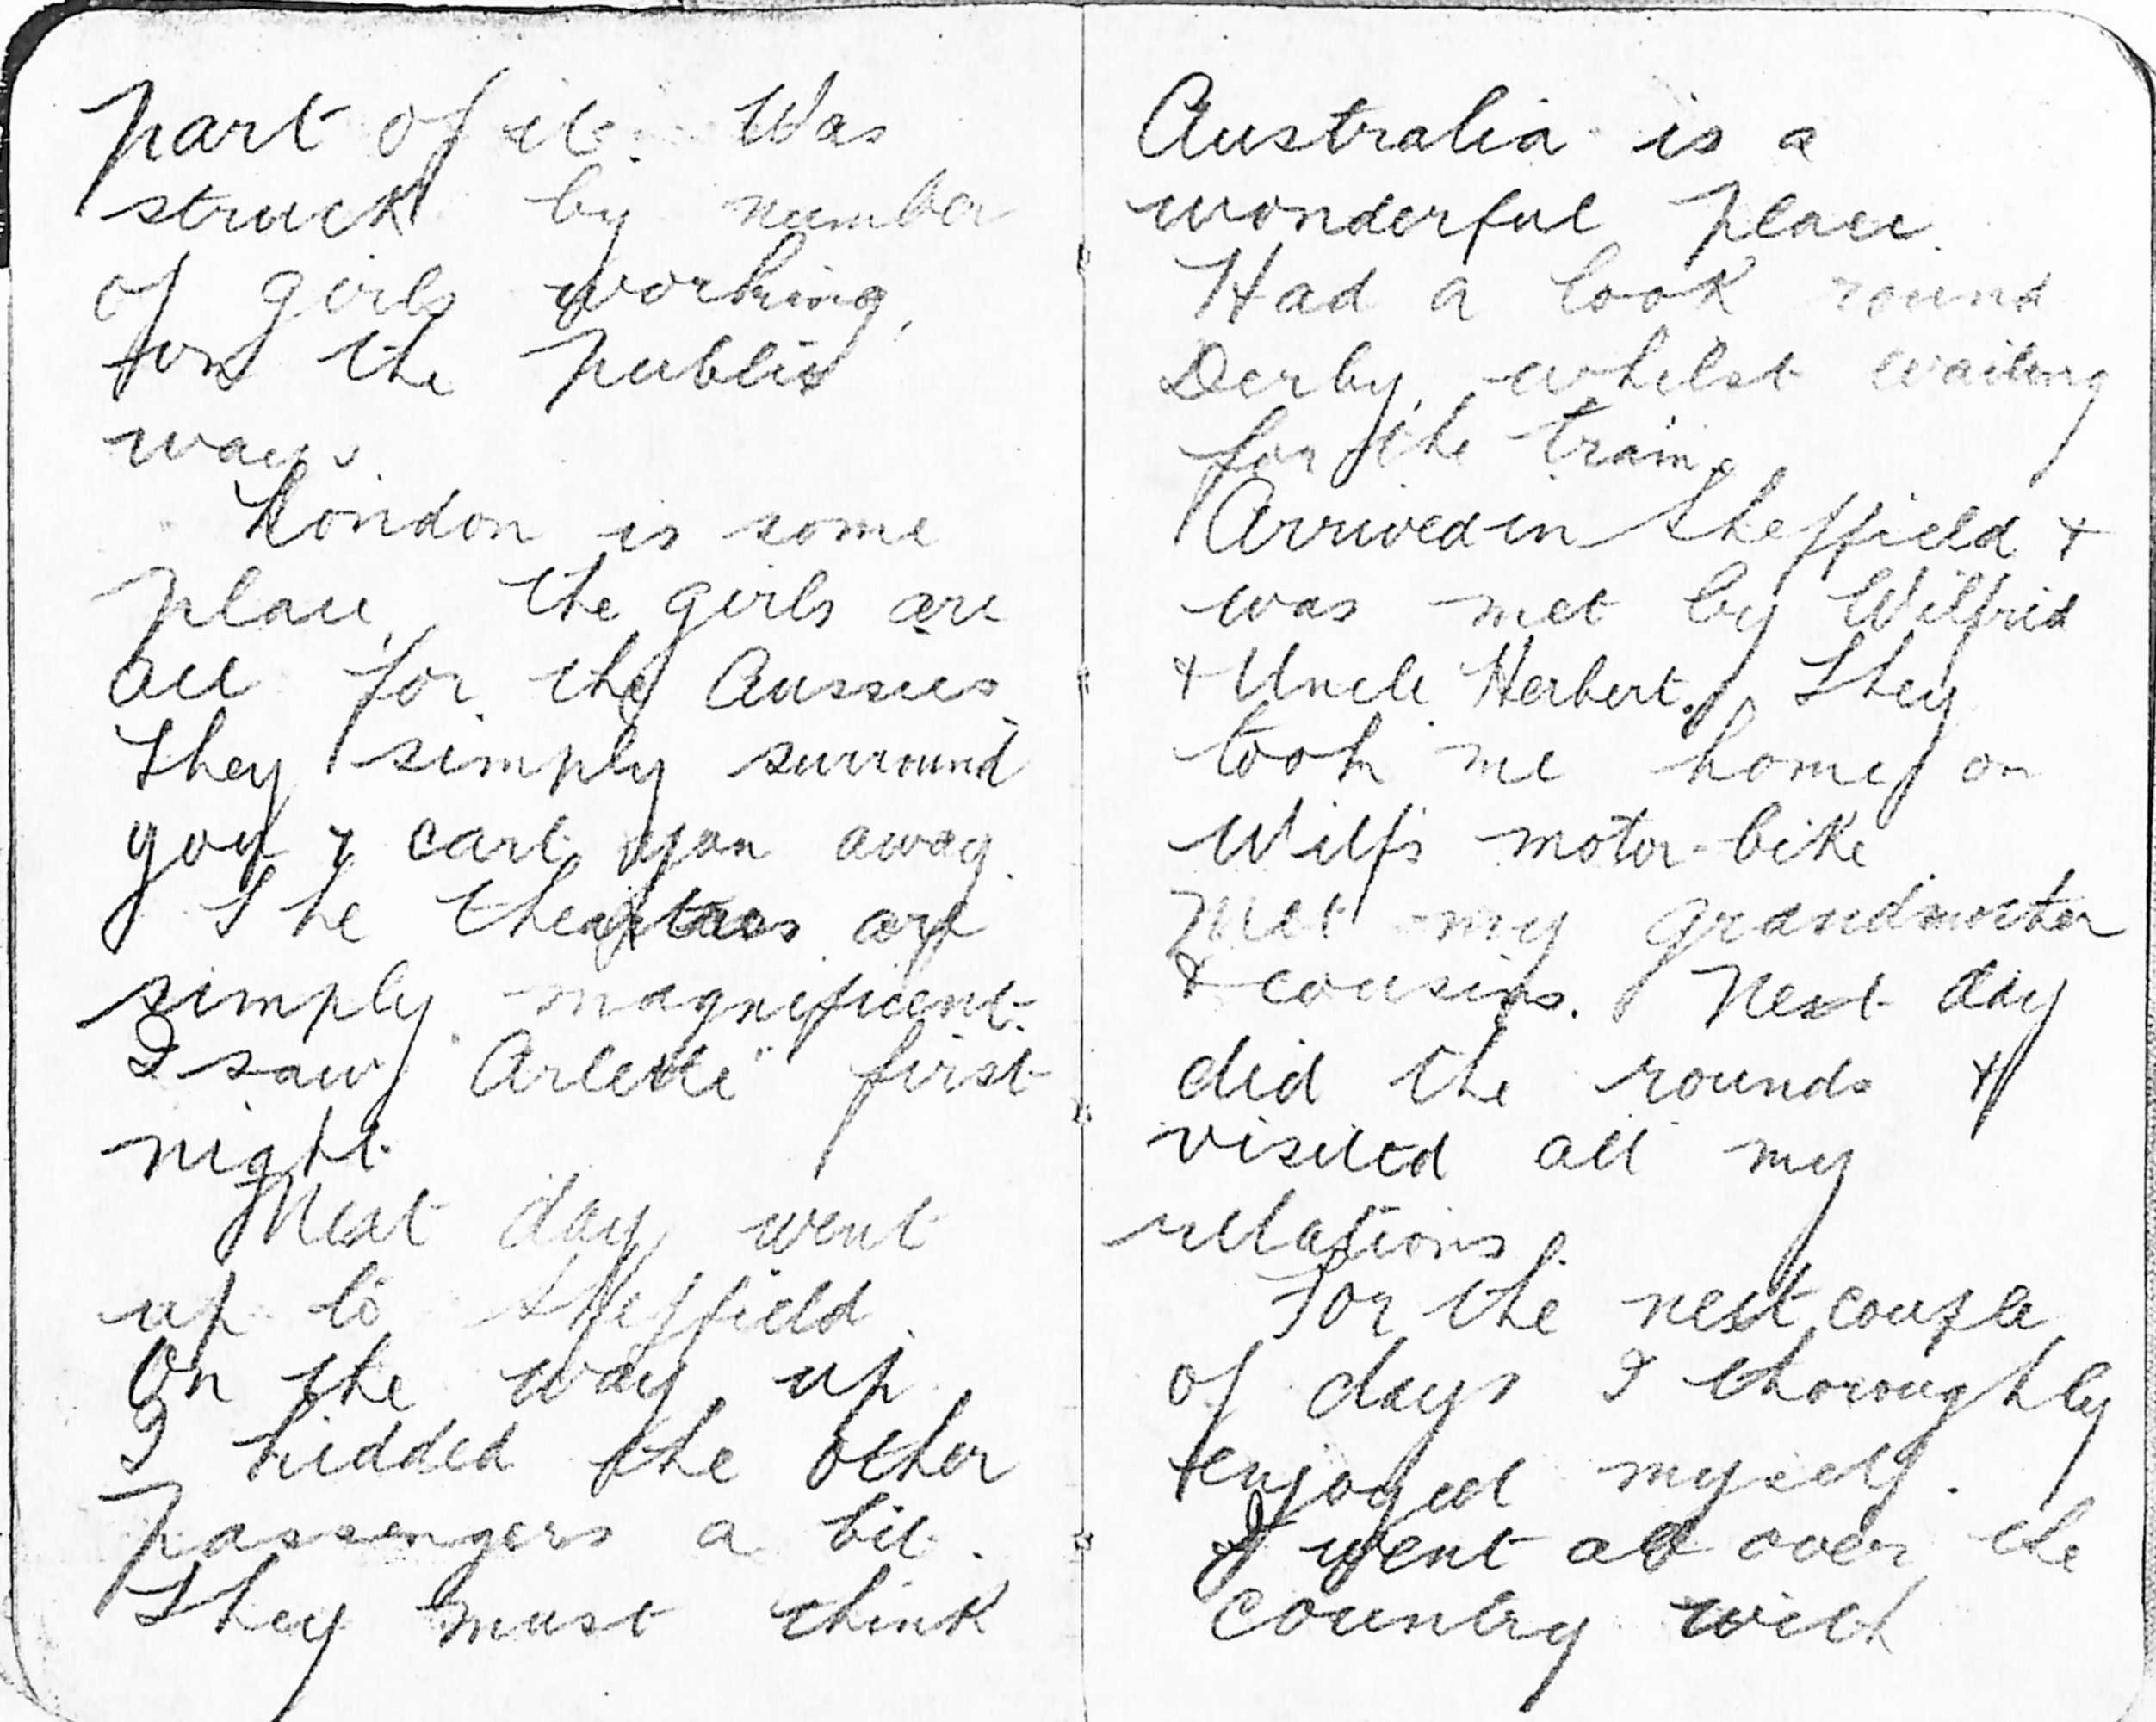 part of it. Was
struck by number
of girls working,
for the public
ways.
London is some
place, the girls are
all for the Aussies.
They simply surround
you & cart you away.
The theatres are
simply magnificent.
I saw "Arlette" first
night.
Next day went
up to Sheffield.
On the way up
I kidded the other
passengers a bit.
They must think
Australia is a
wonderful place.
Had a look round
Derby, whilst waiting
for the train.
Arrived in Sheffield &
was met by Wilfrid
& Uncle Herbert. They
took me home on
Wilf's motor-bike
Met my grandmother
& cousins. Next day
did the rounds &
visited all my
relations.
For the next couple
of days I thoroughly
enjoyed myself.
I went all over the
country with